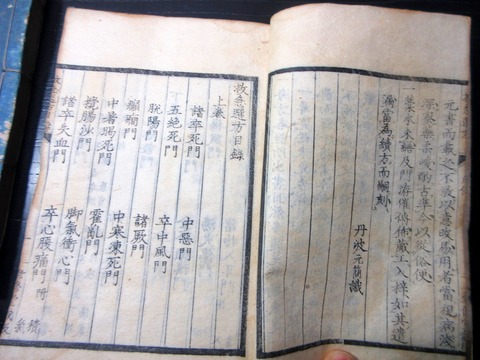 元書而載之不敢以意改易用者當視病淺
深察藥慢酌古準今以從俗便
一藥求來蘇及門諸催傳佈蔵工入梓如其遺
漏當為續方而嗣刻
丹波元簡識
救急選方目錄
上卷
諸卒死門 中惡門
五絕死門 卒中風門
脫陽門 諸厥門
癇門 中寒凍死門
中暑暍死門 霍亂門
攪腸沙門 脚氣衝心門
諸卒失血門 卒心腹痛門 附